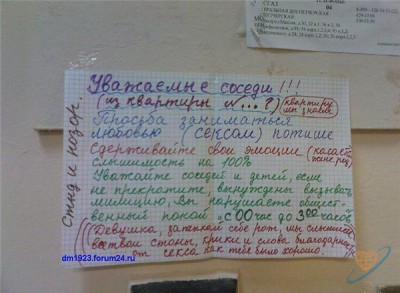 СГАЗ
04
Уважаемые соседи!!!
(из квартиры №...?) (квартиру мы знаем)
Просьба заниматься
любовью (сексом) потише
Сдерживайте свои эмоции
слышимость на 100%
Уважайте соседей и детей, если
не прекратите, вынуждены вызывать
милицию, Вы нарушаете общест-
венный покой с 00 час до 3 00 часов
(Девушка, затыкай себе рот, мы слышим
все твои стоны, крики и слова благодарности
от секса как тебе было хорошо.
Стыд и позор.
dm1923.forum24.ru